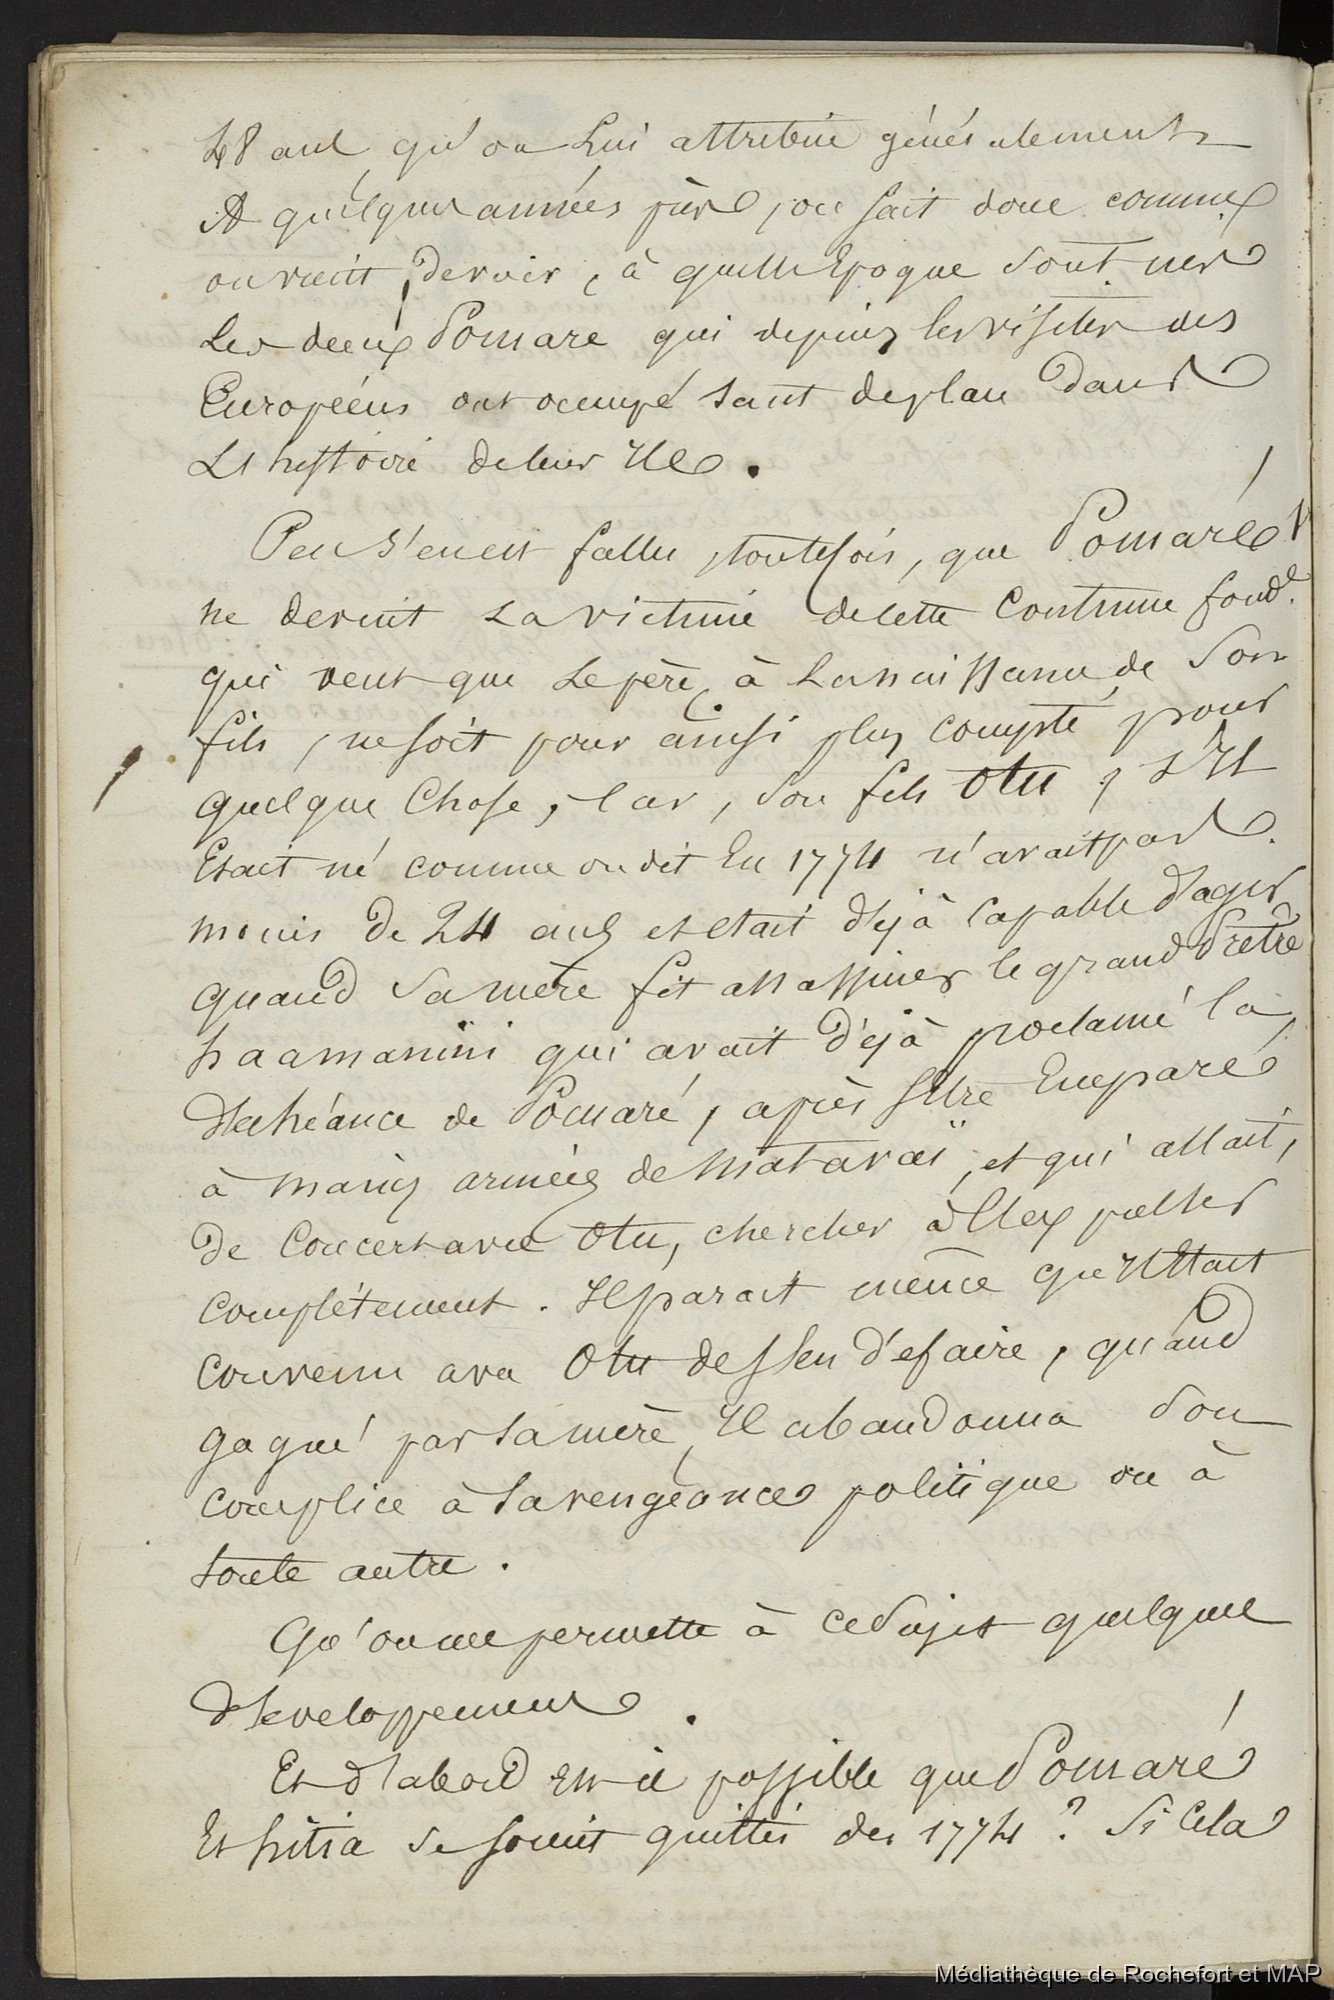 48 ans qu'on Lui attribue généralement
A quelques années près, on sait donc comme
on vient de voir, à quelle Epoque sont nés
Les deux Pomare qui depuis les visites des
Européens ont occupé tant de place dans
L'histoire de leur Ile.
Peu s'en est fallu, toutefois, que Pomaré 1er
ne devint La victime de cette Coutume fond.le
qui veut que Le père, à La naissance de Son
fils, ne soit pour ainsi plus compté pour
quelque Chose, Car, Son fils Otu, s'Il
Etait né comme on dit En 1774 n'avait pas
moins de 24 ans et était déjà Capable d'agir
quand Sa mère fit assassiner le grand Prêtre
haamanini qui avait déjà proclamé la
déchéance de Pomaré, après s'être Emparé
à mains armées de Matavaï, et qui allait,
De Concert avec Otu, chercher à l'Expulser
Complétement. Il parait même qu'Il Etait
Convenu avec Otu de s'en défaire, quand
gagné par Sa mère, Il abandonna Son
Complice à Sa vengeance politique ou à
toute autre.
Qu'on me permette à ce Sujet quelques
développements.
Et d'abord Est-il possible que Pomaré
Et hitia se soient quittés dès 1774? Si Cela
Médiathèque de Rochefort et MAP